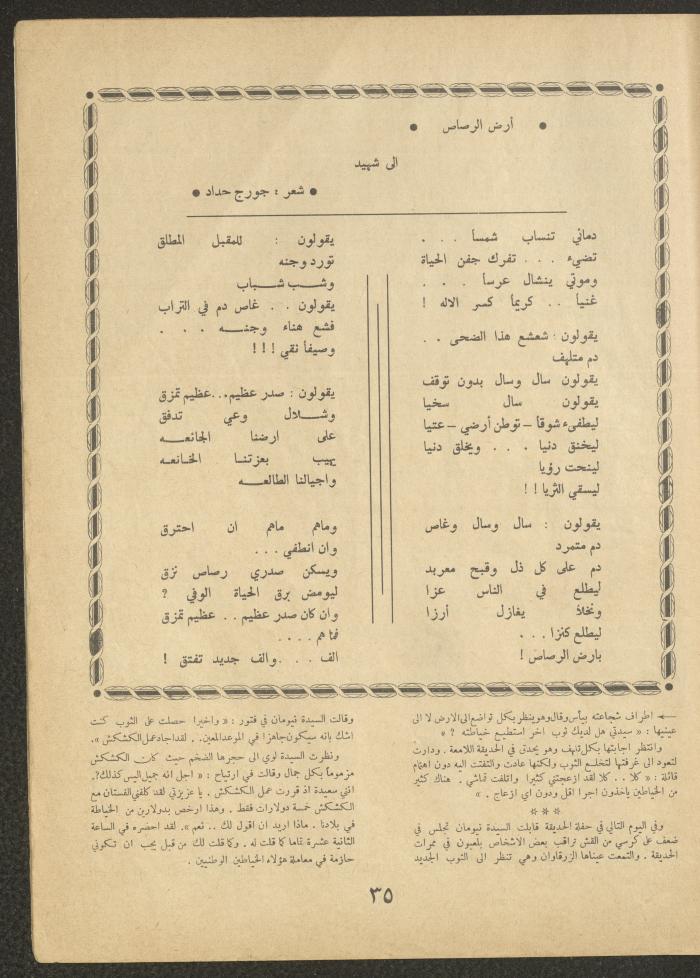 ● أرض الرصاص ●
الى شهيد
● شعر : جورج حداد ●
دماني تنساب شمساً . . .
تضيء . . . تفرك جفن الحياة
وموتي ينشال عرساً . . .
غنياً . . كريماً كسر الاله !
يقولون : شعشع هذا الضحى . .
دم متلهف
يقولون سال وسال بدون توقف
يقولون سال سخيا
ليطفىء شوقاً – توطن أرضي – عتيا
ليخنق دنيا . . . ويخلق دنيا
لينحت رؤيا
ليسقي الثريا ! !
يقولون : سال وسال وغاص
دم متمرد
دم على كل ذل وقبح معربد
ليطلع في الناس عزا
ونخلاً يغازل أرزا
ليطلع كنزا . . .
بارض الرصاص !
يقولون : للمقبل المطلق
تورد وجنه
وشـــب شـــباب
يقولون . . غاص دم في التراب
فشع هناء وجنـــه . . .
وصيفاً نقي ! ! !
يقولون : صدر عظيم...عظيم تمزق
وشـــلال وعي تدفق
على ارضنا الجائعـــه
يهيب بعزتنـــا الخـانعـه
واجيالنا الطالعـــه
وماهم ماهم ان احترق
وان انطفي . . .
ويسكن صدري رصاص نزق
ليومض برق الحياة الوفي ؟
وان كان صدر عظيم . . عظيم تمزق
فما هم . . . .
الف . . . . والف جديد تفتق !
← اطراف شجاعته بيأس وقال وهو ينظر بكل تواضع الى الارض لا الى
عينيها : « سيدتي هل لديك ثوب اخر استطيع خياطته ؟ »
وانتظر اجابتها بكل تلهف وهو يحدق في الحديقة اللامعة . ودارت
لتعود الى غرفتها لتخلع الثوب ولكنها عادت والتفتت اليه دون اهتمام
قائلة : « كلا . . كلا لقد ازعجتني كثيرا واتلفت قماشي . هناك كثير
من الخياطين ياخذون اجرا اقل ودون اي ازعاج . »
* * *
وفي اليوم التالي في حفلة الحديقة قابلت السيدة نيومان تجلس في
ضعف على كرسي من القش تراقب بعض الاشخاص يلعبون في ممرات
الحديقة . والتمعت عيناها الزرقاوان وهي تنظر الى الثوب الجديد
وقالت السيدة نيومان في فتور : « واخيرا حصلت على الثوب كنت
اشك بانه سيكون جاهزا في الموعد المعين . . لقد اجاد عمل الكشكش ».
ونظرت السيدة لوي الى حجرها الضخم حيث كان الكشكش
مزموماً بكل جمال وقالت في ارتياح : « اجل انه جميل اليس كذلك؟.
انني سعيدة اذ قررت عمل الكشكش . يا عزيزتي لقد كلفني الفستان مع
الكشكش خمسة دولارات فقط . وهذا ارخص بدولارين من الخياطة
في بلادنا . ماذا اريد ان اقول لك .. نعم ». لقد احضره في الساعة
الثانية عشرة تماما كما قلت له . وكما قلت لك من قبل يجب ان تكوني
حازمة في معاملة هؤلاء الخياطين الوطنيين .
٣٥